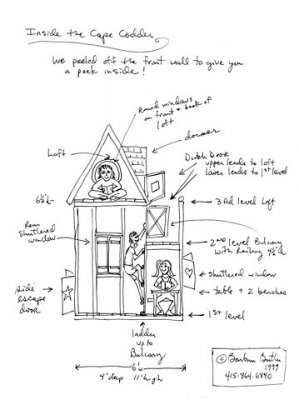 Inside the Cape Codder
We peeled off the front wall to give you
a peek inside!
Round windows
on front & back of
loft
dormer
Loft
Dutch Door
upper leads to loft
lower leads to 1st level
6½'
3rd level Loft
Rear
shuttered
window
2nd level Balcony
with Railing 4½' h
Shuttered window
table + 2 benches
side
escape
door
1st level
ladder
up to
Balcony
6'
4' deep 11' high
© Barbara Butler
1999
415-864-6840